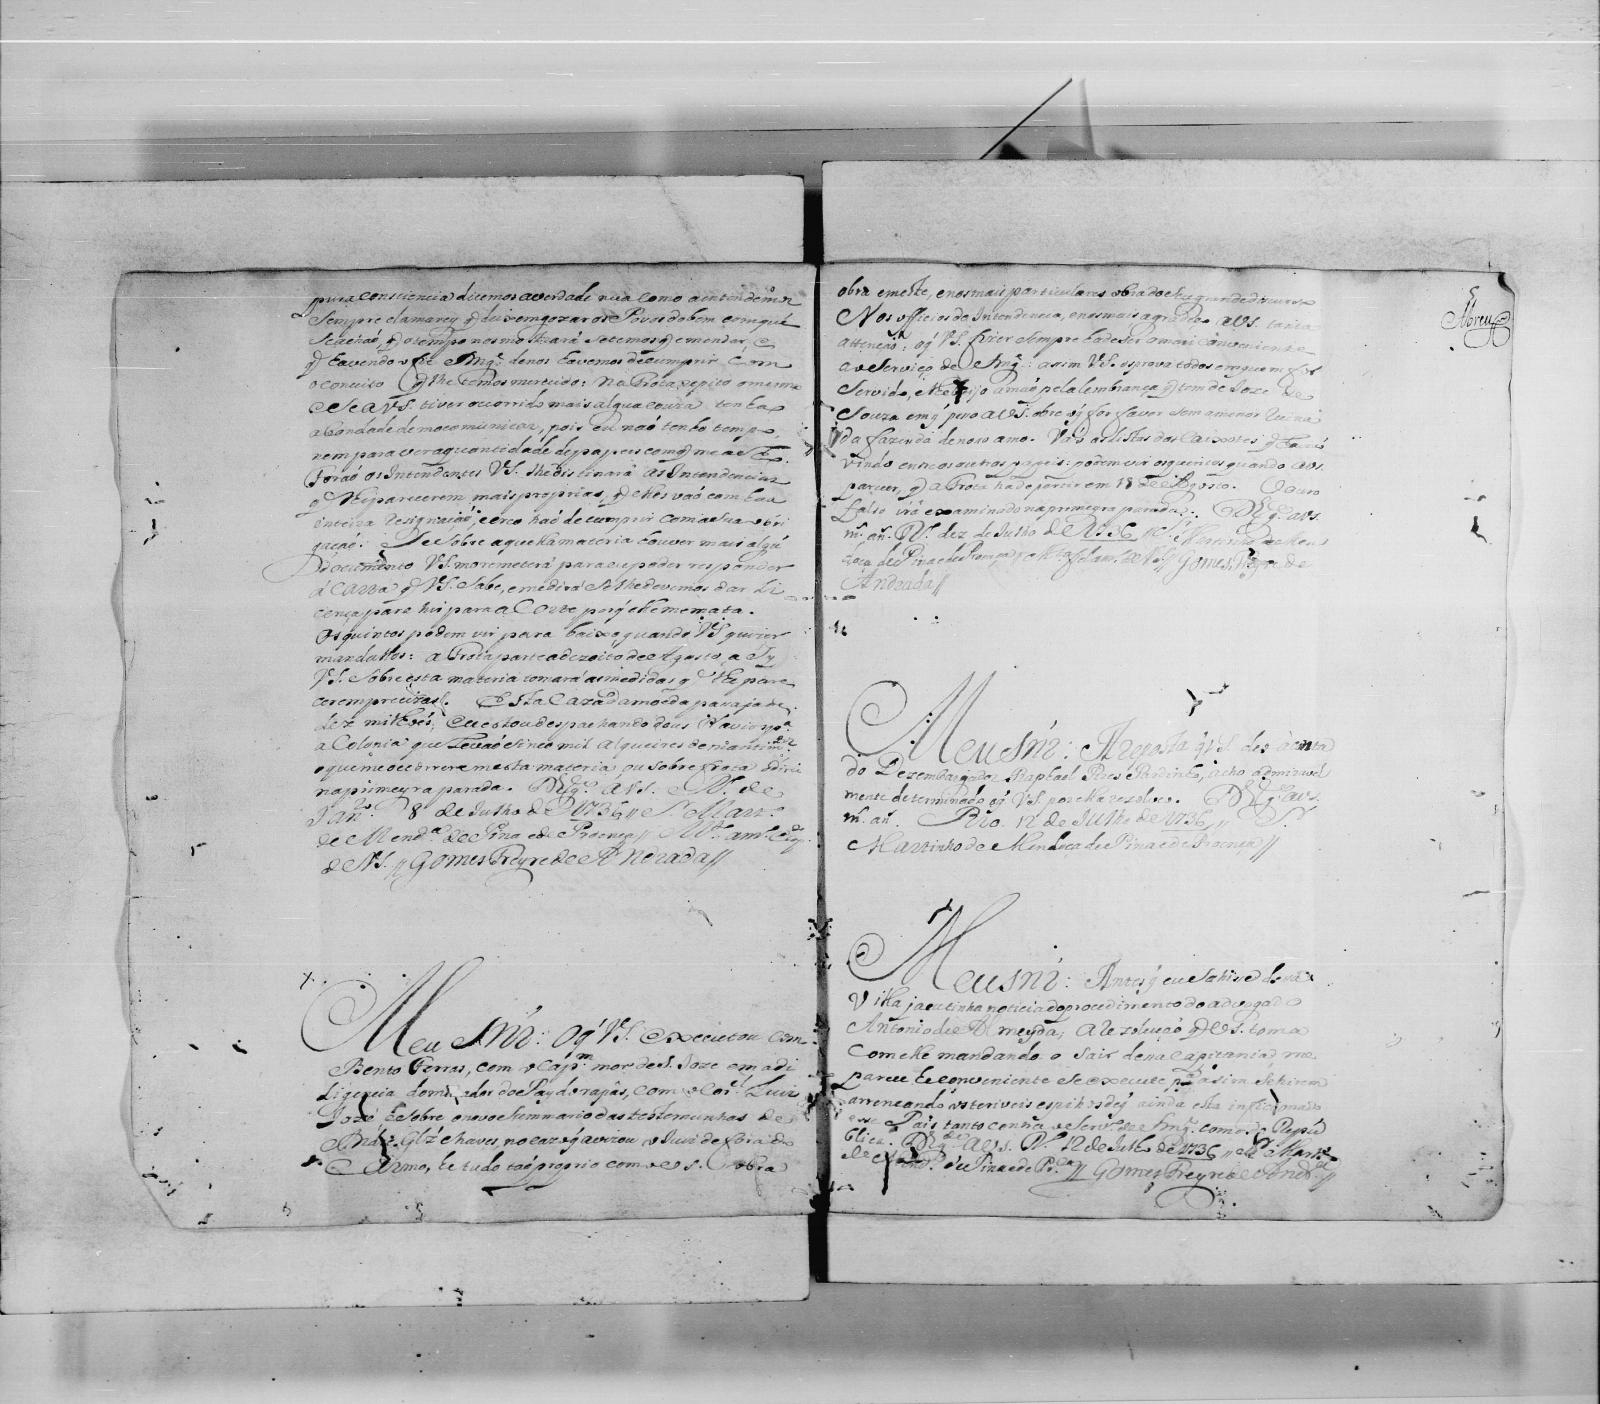 pura consciencia dicemos averdade nua como aentendemos
Sempre clamarey q̃ deixem gozar os Povos do bem com que
Seachaõ, q̃ o tempo nos mostrará Setemos q̃ emendar, e
q̃ havendo Mag.e de nos havemos de cumprir com
o conceito q̃ lhe temos merecido: Na Frota repito omesmo
eSe a V.S. tiver occorrido mais algua couza tenha
a bondade de mo comunicar, pois eu naõ tenho tempo,
nem para ver aquantidade de papeis com q̃ me acho.
Foraõ os Intendentes V.S. lhe destinará as Intendencias
q̃ lhe parecerem mais proprias, q̃ elles vaõ com hua
inteira resignaçaõ, e creo haõ de cumprir com a Sua obri
gaçaõ: Se Sobre aquella materia houver mais algũ
documento V.S. mo remeterá para eu poder responder
á Carta q̃ V.S. Sabe, e medirá Se lhe devemos dar Li
cença para hir para a Corte porq̃ elle me mata.
Os quintos podem vir para baixo quando V.S. quizer
mandallos: a Frota parte a dezoito de Agosto, e
V.S. Sobre esta materia tomará as medidas q̃ lhe pare
cerem precizas. Esta Caza da moeda paraja de
dez mil Reis; Eu estou despachando dous Navios p.a
a Colonia que Levaõ Sinco mil alqueires de mantim.tos
o que me occorrer nesta materia ou Sobre frota direi
na primeyra parada. D.s g.e a V.S. R.o de
Jan.ro 8 de Julho de 1736 // S.r Mart.o
de Mend.ça de Pina e de Proença // M.to am.o e
de V.S. // Gomes Freyre de Andrada //
Meu Snr̃: Oq̃ V.S. executou com
Bento Ferras, com o Cap.m mor de S. Joze em a di
Ligencia do de Papagayo, com o Cor.el Luis
Joze he Sobre o novo Summario das testemunhas de
Chaves, no cazo q̃ avizou o Juiz de fora do
Carmo, he tudo taõ proprio como de V.S. obra
Abreu
obra em este, e nos mais particulares obra do Seu grande discurso
Nos officios da Intendencia, e nos mais agradeço a V.S. tanta
attençaõ: oq̃ V.S. fizer Sempre hade Ser o mais conveniente
ao Serviço de S. Mag.e: assim V.S. o sprova todos em quem for
Servido, e lhe beijo a maõ pela lembrança q̃ tem de Joze de
Souza em q̃ peço a V.S. obre oq̃ for favor Sem a menor ruina
da fazenda de nosso amo. Vaõ as listas dos Caixotes q̃
vindo entre os outros papeis: podem vir os quintos quando a V.S.
parecer, q̃ a Frota hade partir em 18 de Agosto. O ouro
falso irá examinado na primeyra parada. D.s g.e a V.S.
m.s an.s R.o dez de Julho de 1736 // S.r Martinho de Men
doça de Pina e de Proença // M.to fiel am.o de V.S. // Gomes Freyre de
Andrada //
Meu Snr̃: A reposta q̃ V.S. deo á Carta
do Dezembargador Raphael Pires Pardinho, acho admiravel
mente determinado oq̃ V.S. por ella rezolveo. D.s g.e a V.S.
m.s an.s Rio 12 de Julho de 1736 // S.r
Martinho de Mendoça de Pina e de Proença //
Meu Snr̃: Antes q̃ eu Sahisse dessa
Villa ja eu tinha noticia do procedimento do advogado
Antonio de Almeyda, a rezoluçaõ q̃ V.S. toma
com elle mandando o Sair dessa Capitania me
parece he conveniente Se execute p.a assim Se hirem
arrancando os teriveis espinhos de q̃ ainda esta inficionado
esse Pais tanto contra o Serv.ço de S. Mag.e como da Repu
blica. D.s g.de a V.S. R.o 12 de Julho de 1736 // S.r Mart.o
de Mend.ça de Pina e de Pr.ça // Gomes Freyre de Andr.da //